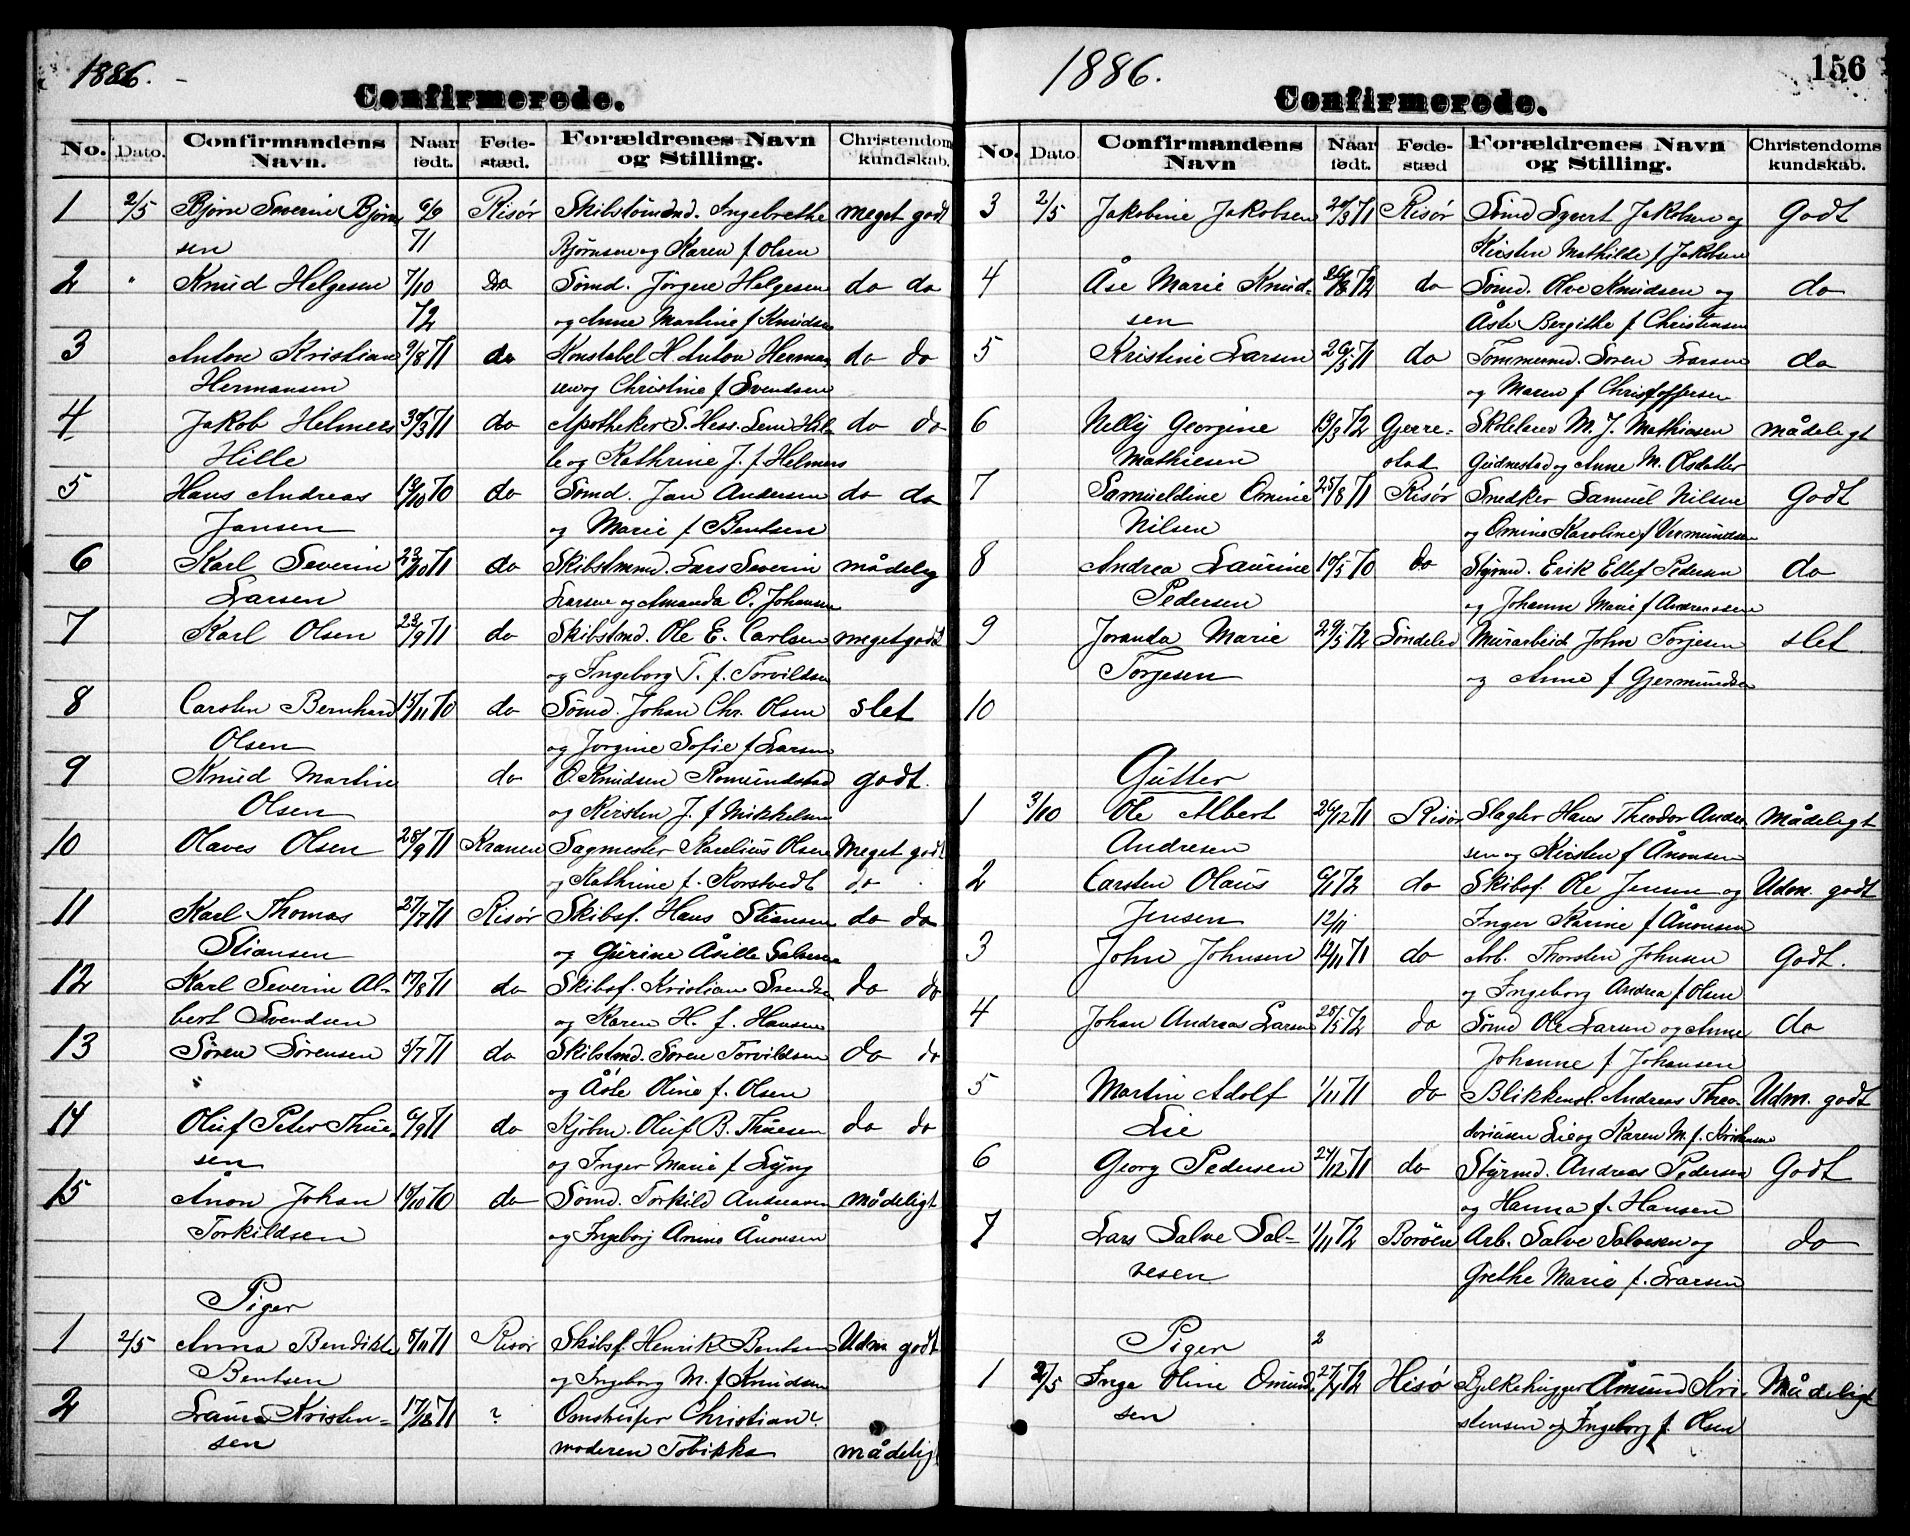 1886.
Confirmerede.
No. Dato. Confirmandens Navn. Naar født. Føde-stæd. Forældrenes Navn og Stilling. Christendoms kundskab.
1 2/5 Bjørn Severin Bjørn 6/9 Risør Skibstømmd. Ingebrethe meget godt
sen 71 Bjørnsen og Karen f. Olsen
2 " Knud Helgesen 7/10 Do Sømd. Jørgen Helgesen do do
72 og Anne Martine f Knudsen
3 Anton Kristian 9/8 71 do Konstabel H. Anton Herman do do
Hermansen sen og Christine f Svendsen
4 Jakob Helmers 30/3 71 do Apotheker S. Hess. Lem Hil do do
Hille le og Kathrine J. f Helmers
5 Hans Andreas 19/10 70 do Sømd. Jan Andersen do do
Jansen og Marie f Bentsen
6 Karl Severin 23/10 71 do Skibstmmd. Lars Severin mådelig
Larsen Larsen og Amanda O. Johansen
7 Karl Olsen 23/9 71 do Skibstmd. Ole E. Carlsen meget godt
og Ingeborg T. f. Torvildsen
8 Carsten Bernhard 15/11 70 do Sømd. Johan Chr. Olsen slet
Olsen og Jørgine Sofie f Larsen
9 Knud Martin do O. Knudsen Romundstad godt.
Olsen og Kirsten J. f Mikkelsen
10 Olaves Olsen 28/9 71 Kranen Sagmester Karelius Olsen Meget godt
og Kathrine f. Korstvedt do
11 Karl Thomas 27/7 71 Risør Skibsf. Hans Stiansen do do
Stiansen og Gurine Åsille Salvesen
12 Karl Severin Al- 17/8 71 do Skibsf. Kristian Svendsen do do
bert Svendsen og Karen H. f. Hansen
13 Søren Sørensen 5/7 71 do Skibstmd. Søren Torvildsen do do
og Åsle Oline f. Olsen
14 Oluf Peter Thue- 6/9 71 do Kjøbm. Oluf B. Thuesen do do
sen og Inger Marie f Lyng
15 Ånon Johan 15/10 70 do Sømd. Torkild Andreasen mådeligt
Torkildsen og Ingeborg Amine Ånonsen
Piger
1 2/5 Anna Bendikte 8/11 71 Risør Skibsf. Henrik Bentsen Udm godt
Bentsen og Ingeborg M. f Knudsen
2 Laura Kristen- 17/12 71 ? Omstreifer Christian ?
sen moderen Tobikka mådeligt
1886. 156
Confirmerede.
No. Dato Confirmandens Navn Naar født. Føde-stæd Forældrenes Navn og Stilling. Christendoms kundskab.
3 2/5 Jakobine Jakobsen 20/3 71 Risør Sømd Syvert Jakobsen og Godt
Kirsten Mathilde f Jakobsen
4 Åse Marie Knud- 26/8 72 do Sømd. Olve Knudsen og do
sen Åste Bergithe f. Christensen
5 Kristine Larsen 26/5 71 do Tømmermd. Søren Larsen do
og Maren f Christoffersen
6 Nelly Georgine 13/3 72 Gjerre- Skolelærer M. J. Mathiesen mådeligt
Mathiesen stad Gudnestad og Anne M. Olsdatter
7 Samueldine Omine 25/8 71 Risør Snedker Samuel Nilsen Godt
Nilsen og Omine Karoline f Vermundsen
8 Andrea Laurine 10/5 70 do Styrmd. Erik Ellef Pedersen do
Pedersen og Johanne Marie f Andreassen
9 Joranda Marie 29/5 72 Søndeled Murarbeid John Torjesen slet
Torjesen og Anne f Gjermundsen
10
Gutter
1 3/10 Ole Albert 26/12 71 Risør Slagter Hans Theodor Andre Mådeligt
Andresen sen og Kirsten f Ånonsen
2 Carsten Olaus 6/1 72 do Skibsf. Ole Jensen og Udm. godt
Jensen 12/11 Inger Karine f Ånonsen
3 John Johnsen 12/11 71 do Arb. Thorsten Johnsen Godt.
og Ingeborg Andrea f Olsen
4 Johan Andreas Larsen 25/5 72 do Sømd Ole Larsen og Anne do
Johanne f Johansen
5 Martin Adolf 1/11 71 do Blikkensl. Andreas Theo- Udm. godt
Lie doriusen Lie og Karen M. f. Kristensen
6 Georg Pedersen 24/12 71 do Styrmd. Andreas Pedersen Godt
og Hanna f. Hansen
7 Lars Salve Sal- 1/11 72 Borøen Arb. Salve Salvesen og do
vesen Grethe Marie f. Larsen
Piger 2
1 2/5 Inga Oline Omund 27/1 72 Hisø Bjelkehugger Åmund Kri Mådeligt
sen stensen og Ingeborg f. Olsen